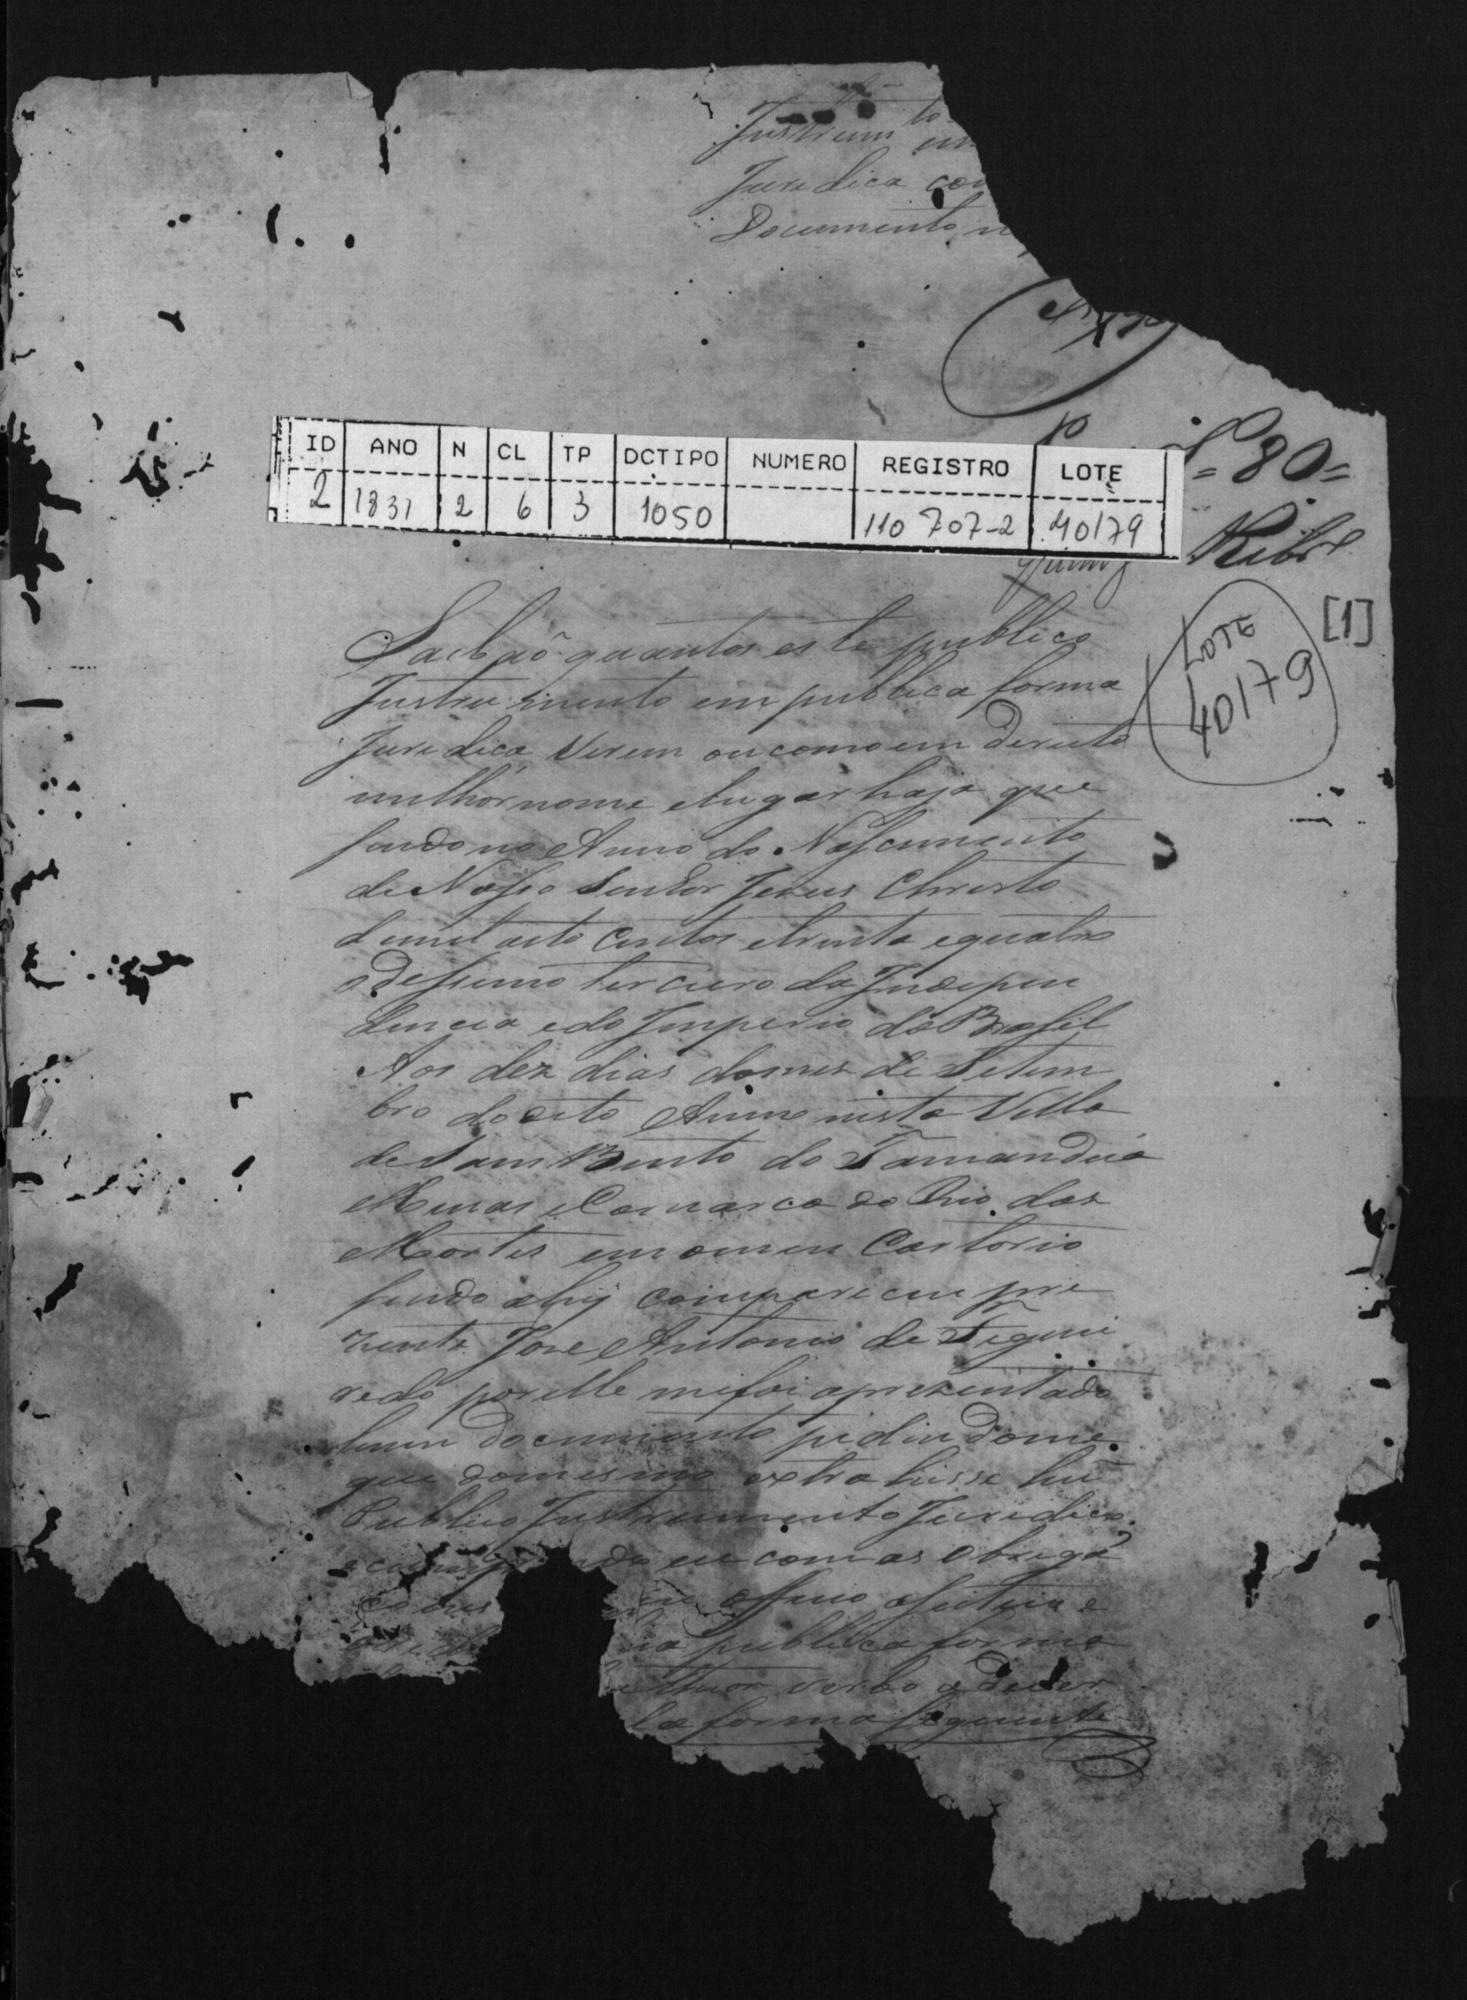 Instrum to
Juridica com
Documento n
Nº 80=
Ribr
ID ANO N CL TP DCTIPO NUMERO REGISTRO LOTE
2 1831 2 6 3 1050 110 707-2 40179
[1]
LOTE
40179
Saibaõ quantos este publico
Instru mento em publica forma
Juridica virem ou como em dereito
milhor nome elugar haja que
sendo no Anno do Nascimento
de Nosso Senhor Jezus Christo
de mil oito centos etrinta equatro
o desimo terceiro da Indepen
dencia edo Imperio do Brasil
Aos dez dias domez de Setem
bro do dito Anno nesta Villa
de Sam Bento do Tamanduá
Minas eComarca do Rio das
Mortes em omeu Cartorio
sendo ahy compareceu pre
zente Joze Antonio de Figuei
redo por elle mefoi aprezentado
hum documento pedindome
que domesmo extrahisse hũ
Publico Instrumento Juridico
eu com as obriga
officio
publica forma
theor verbo adverbo
da forma seguinte